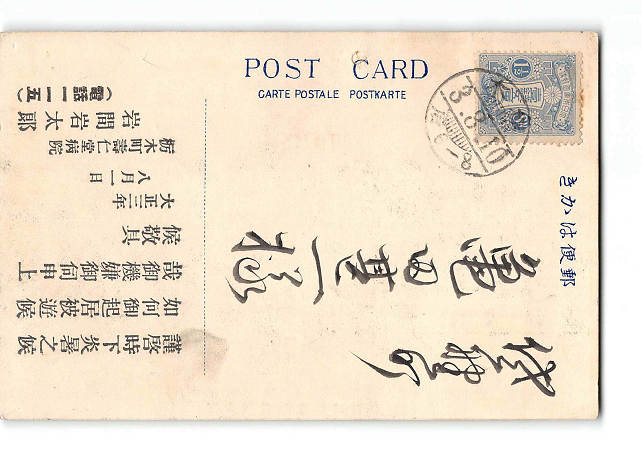 POST CARD
CARTE POSTALE POSTKARTE
きかは便郵
亀田甚一様
謹啓時下炎暑之候
如何御起居被遊候
哉御機嫌御伺申上
候敬具
大正三年
八月一日
栃木町壽仁堂病院
岩間岩太郎
(電話一一五)